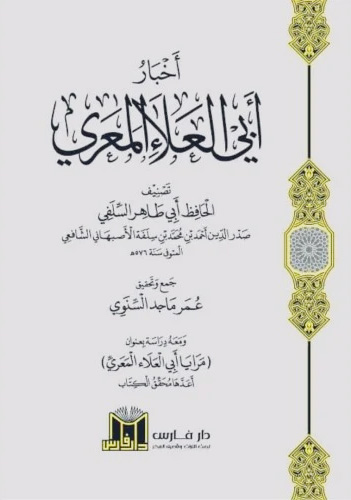 أخبار
أبي العلاء المعري
تصنيف
الحافظ أبي طاهر السلفي
صدر الدين أحمد بن محمد بن سلفة الأصبهاني الشافعي
المتوفى سنة ٥٧٦هـ
جمع وتحقيق
عمر ماجد السنوي
ومعه دراسة بعنوان
(مرايا أبي العلاء المعري)
أعدها محقق الكتاب
دار فارس
دار فارس